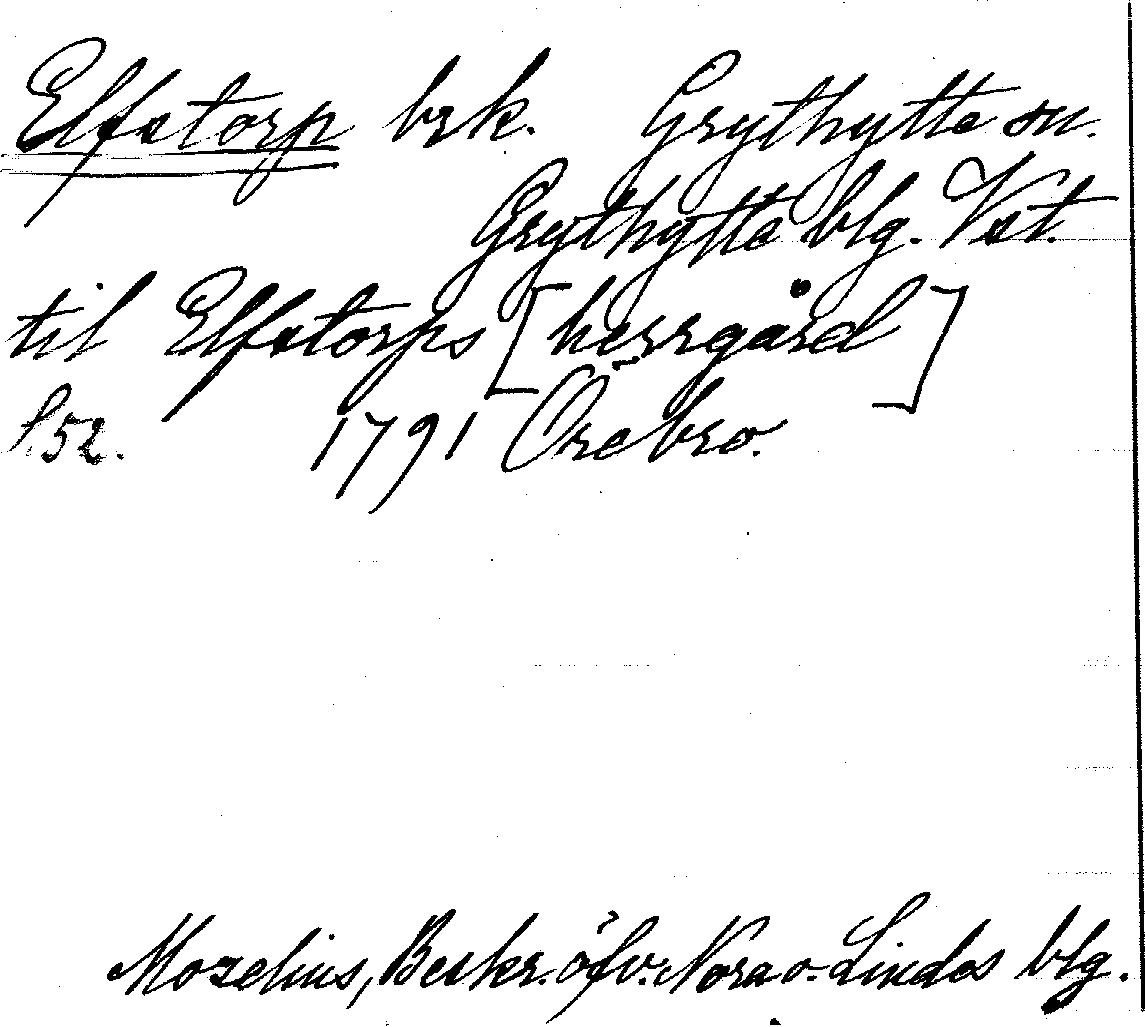 Elfstorp brk. Grythytte sn.
Grythytte blg. Vst.
til Elfstorps [herrgård]
s. 52. 1791 Örebro.
Mozelius, Beskr. öfv. Nora o. Lindes blg.